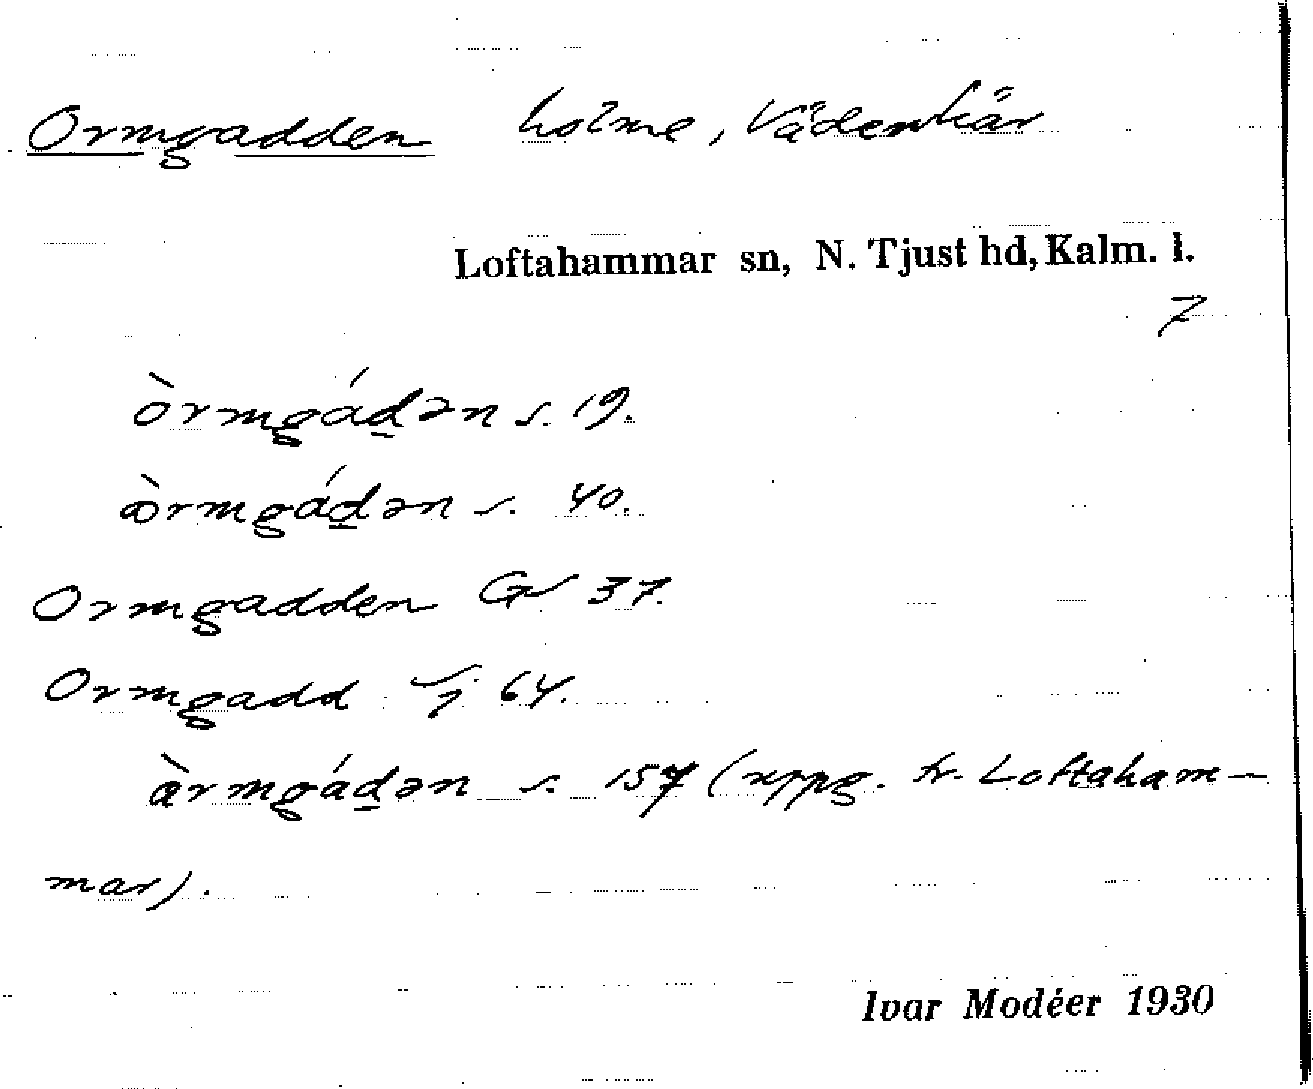 Ormgadden holme, Vådenskär
Loftahammar sn, N. Tjust hd, Kalm. l.
7
òrmgáḏən s. 19.
ɷ̀rmgáḏən s. 40.
Ormgadden G 37.
Ormgadd j 64.
àrmgáḏən s. 157 (uppg. fr. Loftaham-
mar).
Ivar Modéer 1930